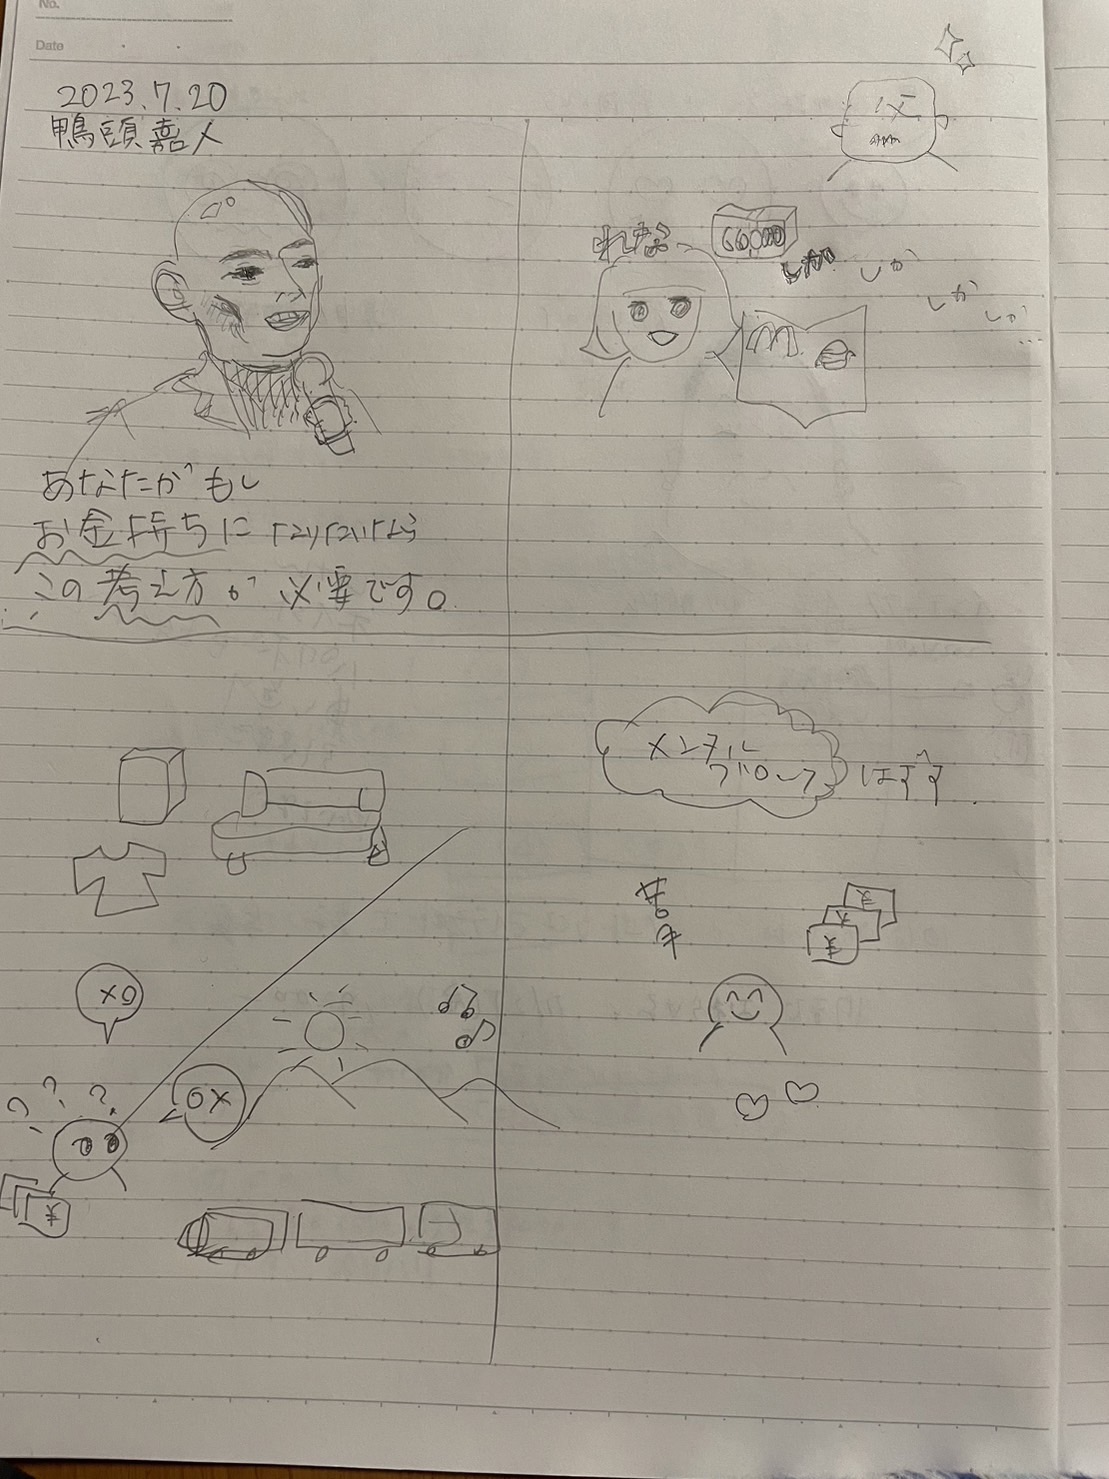 No.
Date
2023.7.20
鴨頭嘉人
父
れな
66,000
しか しか
しか
しか
...
M
あなたがもし
お金持ちになりたいなら
この考え方が必要です。
メンタル
ブロック はずす
×0
苦
手
¥
¥
¥
0×
? ? ?
¥